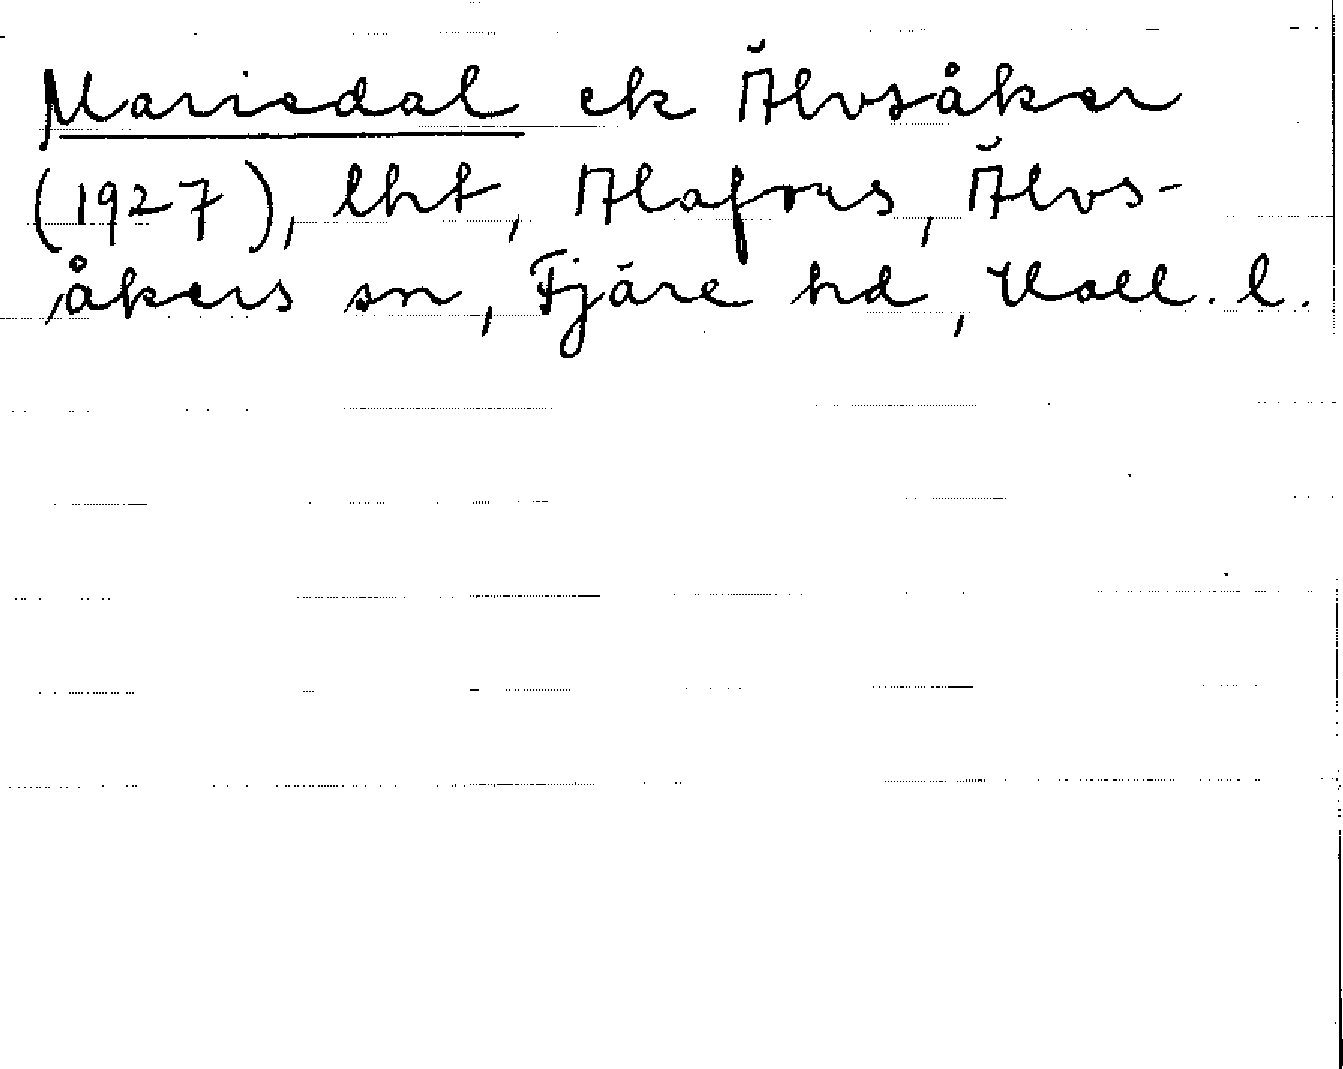 Mariedal ek Älvsåker
(1927), lht, Alafors, Älvs-
åkers sn, Fjäre hd, Hall. l.